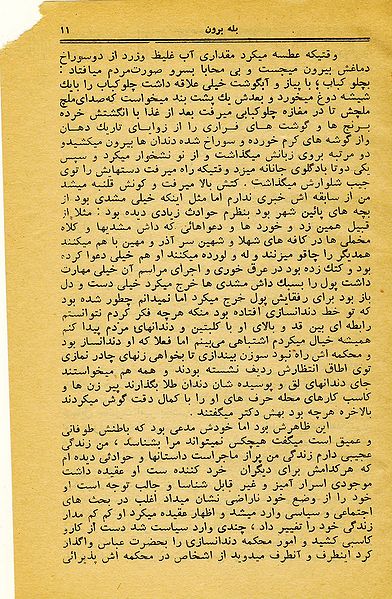 بله برون
۱۱
وقتیکه عطسه میکرد مقداری آب غلیظ وزرد از دوسوراخ
دماغش بیرون میجست و بی محابا بسرو صورت‌مردم میافتاد :
بچلو کباب ، با پیاز و آبگوشت خیلی علاقه داشت چلوکباب را بایك
شیشه دوغ میخورد و بعدش یك پشت بند میخواست که‌صدای‌ملچ
ملچش تا در مغازه چلوکبابی میرفت بعد از غذا با انگشتش خرده
برنج ها و گوشت های فراری را از زوایای تاریك دهان
واز گوشه های کرم خورده و سوراخ شده دندان ها بیرون میکشیدو
دو مرتبه بروی زبانش میگذاشت و از نو نشخوار میکرد و سپس
یکی دوتا بادگلوی جانانه میزد و قتیکه راه میرفت دستهایش را توی
جیب شلوارش میگذاشت . کتش بالا میرفت و کونش قلنبه میشد
من از سابقه اش خبری ندارم اما مثل اینکه خیلی مشدی بود از
بچه های پائین شهر بود بنظرم حوادث زیادی دیده بود : مثلا از
قبیل همین زد و خورد ها و دعواهائی که داش مشدیها و کلاه
مخملی ها در کافه های شهلا و شهین سر آذر و مهین با هم میکنند
همدیگر را چاقو میزنند و له و لورده میکنند او هم خیلی دعوا کرده
بود و کتك زده بود در عرق خوری و اجرای مراسم آن خیلی مهارت
داشت پول را بسبك داش مشدی ها خرج میکرد خیلی دست و دل
باز بود برای رفقایش پول خرج میکرد اما نمیدانم چطور شده بود
که تو خط دندانسازی افتاده بود منکه هرچه فکر کردم نتوانستم
رابطه ای بین قد و بالای او با کلبتین و دندانهای مردم پیدا کنم
همیشه خیال میکردم اشتباهی می‌بینم اما فعلا که او دندانساز بود
و محکمه اش راه نبود سوزن بیندازی تا بخواهی زنهای چادر نمازی
توی اطاق انتظارش ردیف نشسته بودند و همه هم میخواستند
جای دندانهای لق و پوسیده شان دندان طلا بگذارند پیر زن ها و
کاسب کارهای محله حرف های او را با کمال دقت گوش میکردند
بالاخره هرچه بود بهش دکتر میگفتند .
این ظاهرش بود اما خودش مدعی بود که باطنش طوفانی
و عمیق است میگفت هیچکس نمیتواند مرا بشناسد ، من زندگی
عجیبی دارم زندگی من پراز ماجراست داستانها و حوادثی دیده ام
که هرکدامش برای دیگران خرد کننده ست او عقیده داشت
موجودی اسرار آمیز و غیر قابل شناسا و جالب توجه است او
خود را از وضع خود ناراضی نشان میداد اغلب در بحث های
اجتماعی و سیاسی وارد میشد و اظهار عقیده میکرد او کم کم مدار
زندگی خود را تغییر داد ، چندی وارد سیاست شد دست از کارو
کاسبی کشید و امور محکمه دندانسازی را بحضرت عباس واگذار
کرد اینطرف و آنطرف میدوید از اشخاص در محکمه اش پذیرائی